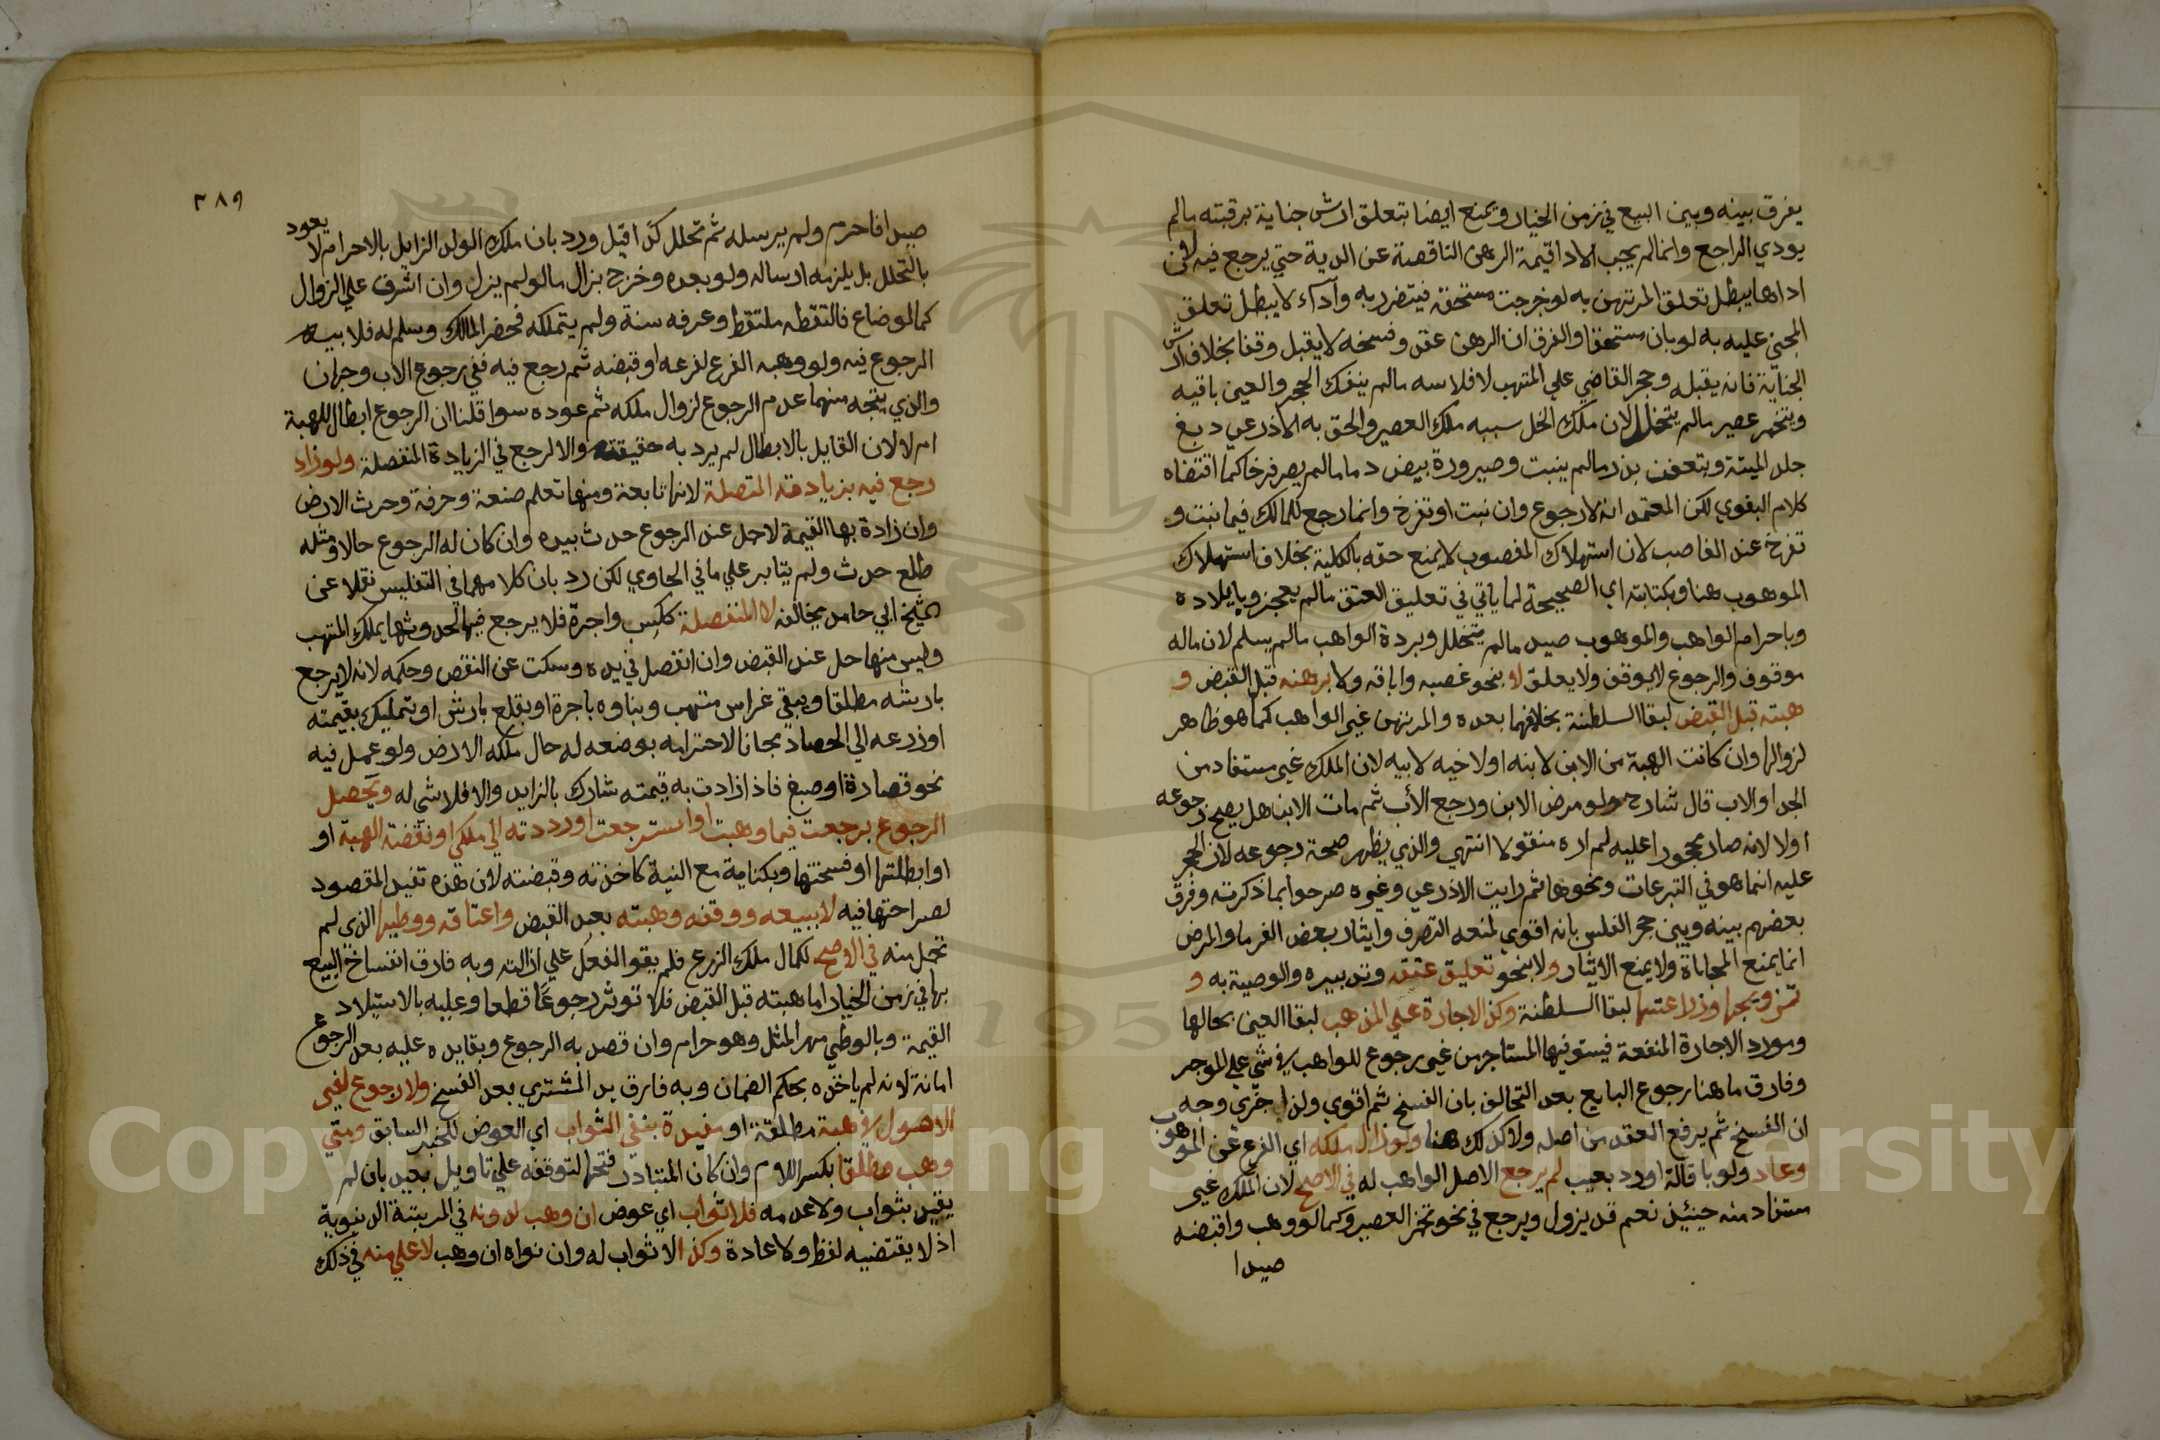 يفرق بينه وبين البيع في زمن الخيار ويمنع ايضا بتعلق ارش جناية برقبته مالم
يودي الراجع وانما لم يجب لاداقيمة الرهن الناقصة عن الدية حتي يرجع فيه لان
اداها يبطل تعلق المرتهن به لو خرجت مستحقة فيتضرر به وآداء لا يبطل تعلق
المجني عليه به لو بان مستحقا والفرق ان الرهن عقد وفسخه لا يقبل وقفا بخلاف ارش
الجناية فانه يقبله وحجر القاضي علي المتهب لا فلاسه مالم ينفك الحجر والعين باقية
ويتخمر عصير مالم يتخلل لان ملك الخل سببه ملك العصير والحق به الاذرعي دبغ
جلد الميتة ويتعفن بذر مالم ينبت وصيرورة بيض دما مالم يصر فرخا كما اقتضاه
كلام البغوي لكن المعتمد انه لا رجوع وان نبت او تفرخ وانما رجع للمالك فيما نبت و
تفرخ عند الغاصب لان استهلاك المغصوب لا يمنع حقه بالكلية بخلاف استهلاك
الموهوب هنا وبكتابته اي الصحيحة لما ياتي في تعليق العتق مالم يعجز وبايلاده
وباحرام الواهب والموهوب صيد مالم يتحلل وبردة الواهب مالم يسلم لان ماله
موقوف والرجوع لا يوقف ولا يعلق لا بنحو غصبه واباقه ولا برهنه قبل القبض و
هبته قبل القبض لبقا السلطنة بخلافهما بعده والمرتهن غير الواهب كما هو ظاهر
لزوالها وان كانت الهبة من الابن لابنه او لاخيه لابيه لان الملك غير مستفاد من
الجد او الاب قال شارح ولو مرض الابن ورجع الأب ثم مات الابن هل يصح رجوعه
اولا لانه صار محجورا عليه لم اره منقولا انتهي والذي يظهر صحة رجوعه لان الحجر
عليه انما هو في التبرعات ونحوها ثم رايت الاذرعي وغيره صرحوا بما ذكرته وفرق
بعضهم بينه وبين حجر الفلس بانه اقوي لمنعه التصرف وايثار بعض الغرما والمرض
انما يمنع المحاباة ولا يمنع الايثار ولا بنحو تعليق عتقه وتدبيره والوصية به و
تزويجها وزراعتها لبقا السلطنة وكذا الاجارة علي المذهب لبقا العين بحالها
ومورد الاجارة المنفعة فيستوفيها المستاجر من غير رجوع للواهب بشي علي الموجر
وفارق ما هنا رجوع البايع بعد التحالف بان الفسخ ثم اقوي ولذا جري وجه
ان الفسخ ثم يرفع العقد من اصله ولا كذلك هنا ولو زال ملكه اي الفرع عن الموهوب
وعاد ولو باقالة او رد بعيب لم يرجع الاصل الواهب له في الاصح لان الملك غير
مستفاد منه حينئذ نعم قد يزول ويرجع في نحو تخمر العصير وكما لو وهب واقبضه
صيدا
٣٨٩
صيدا فاحرم ولم يرسله ثم تحلل كذا قيل ورد بان ملك الولد الزايل بالاحرام لا يعود
بالتحلل بل يلزمه ارساله ولو بعده وخرج بزال مالو لم يزل وان اشرف علي الزوال
كما لو ضاع فالتقطه ملتقط وعرفه سنة ولم يتملكه فحضر المالك وسلم له فلابيه
الرجوع فيه ولو وهبه الفرع لفرعه واقبضه ثم رجع فيه ففي رجوع الاب وجهان
والذي يتجه منهما عدم الرجوع لزوال ملكه ثم عوده سوا قلنا ان الرجوع ابطال للهبة
ام لا لان القايل بالابطال لم يرد به حقيقته والا لرجع في الزيادة المنفصلة ولو زاد
رجع فيه بزيادته المتصلة لانها تابعة ومنها تعلم صنعة وحرفة وحرث الارض
وان زادة بها القيمة لا حمل عند الرجوع حدث بيده وان كان له الرجوع حالا ومثله
طلع حدث ولم يتابر علي ما في الحاوي لكن رد بان كلامهما في التفليس نقلا عن
الشيخ ابي حامد يخالفه لا المنفصلة ككسب واجرة فلا يرجع فيها لحدوثها بملك المتهب
وليس منها حمل عند القبض وان انفصل في يده وسكت عن النقص وحكمه لانه لا يرجع
بارشه مطلقا ويبقي غراس متهب وبناوه باجرة او يقلع بارش او تمليك بقيمته
او زرعه الي الحصاد مجانا لاحترامه بوضعه له حال ملكه الارض ولو عمل فيه
نحو قصارة او صبغ فاذا زادت به قيمته شارك بالزايد والا فلا شي له ويحصل
الرجوع برجعت فيما وهبت او استرجعت او رددته الي ملكي او نقضة الهبة او
او ابطلتها او فسختها وبكناية مع النية كاخذته وقبضته لان هذه تفيد المقصود
لصراحتها فيه لا ببيعه ووقفه وهبته بعد القبض واعتاقه ووطيها الذي لم
تحمل منه في الاصح لكمال ملك الفرع فلم يقو الفعل علي ازالته وبه فارق انفساخ البيع
بها في زمن الخيار اما هبته قبل القبض فلا توثر رجوعا قطعا وعليه بالاستيلاد
القيمة وبالوطي مهر المثل وهو حرام وان قصد به الرجوع وبقايده عليه بعد الرجوع
امانة لانه لم ياخذه بحكم الضمان وبه فارق يد المشتري بعد الفسخ ولا رجوع لغير
الاصول في هبة مطلقة او مقيدة بنفي الثواب اي العوض للخبر السابق ومتي
وهب مطلقا بكسر اللام وان كان المتبادر فتحها لتوقفه علي تاويل بعيد بان لم
يقيد بثواب ولا عدمه فلا ثواب اي عوض ان وهب لدونه في المرتبة الدنيوية
اذ لا يقتضيه لفظ ولا عادة وكذا لا ثواب له وان نواه ان وهب لاعلي منه في ذلك
Copyright © King Saud University
1957